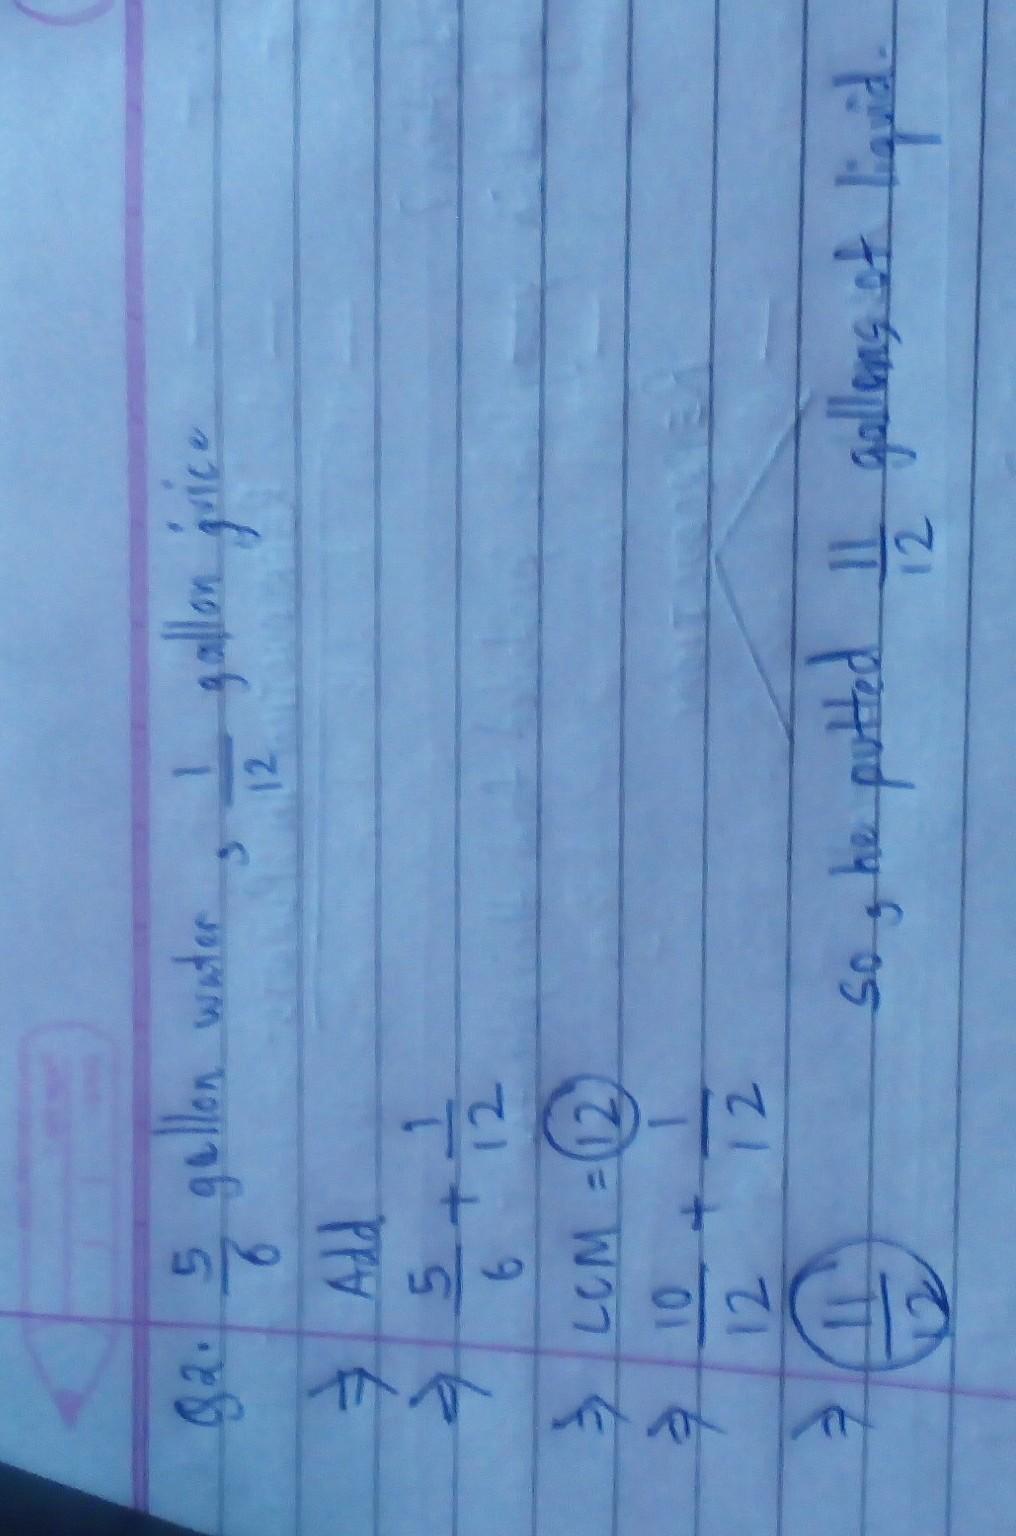 Q2. 5/6 gallon water, 1/12 gallon juice
⇒ Add
⇒ 5/6 + 1/12
⇒ LCM = 12
⇒ 10/12 + 1/12
⇒ 11/12 So, he putted 11/12 gallons of liquid.